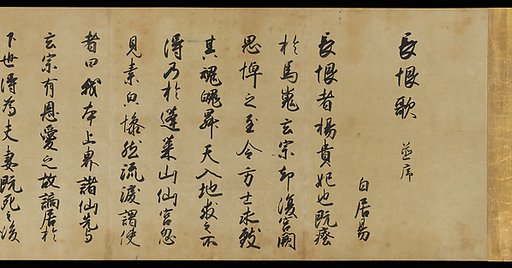 長恨歌 並序
白居易
長恨者楊貴妃也既瘞
於馬嵬玄宗却復宮闕
思悼之至令方士求致
其魂魄昇天入地求之不
得乃於蓬萊山仙宮忽
見素皃惨然流涙謂使
者曰我本上界諸仙先与
玄宗有恩愛之故謫居於
下世得為夫妻既死之後